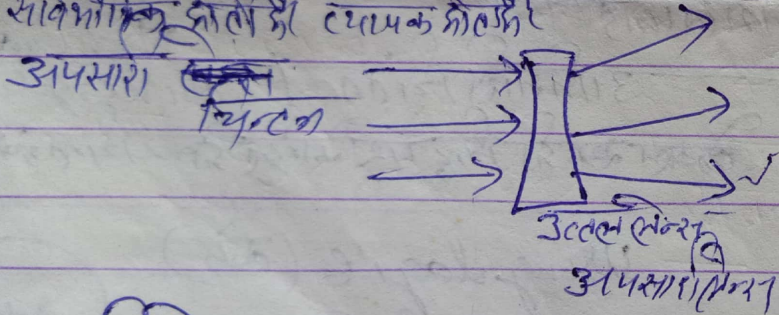 सावभौमिक होता है। व्यापक होता है।
अपसारी
चिन्तन
उत्तल लेन्स
अपसारी लेन्स